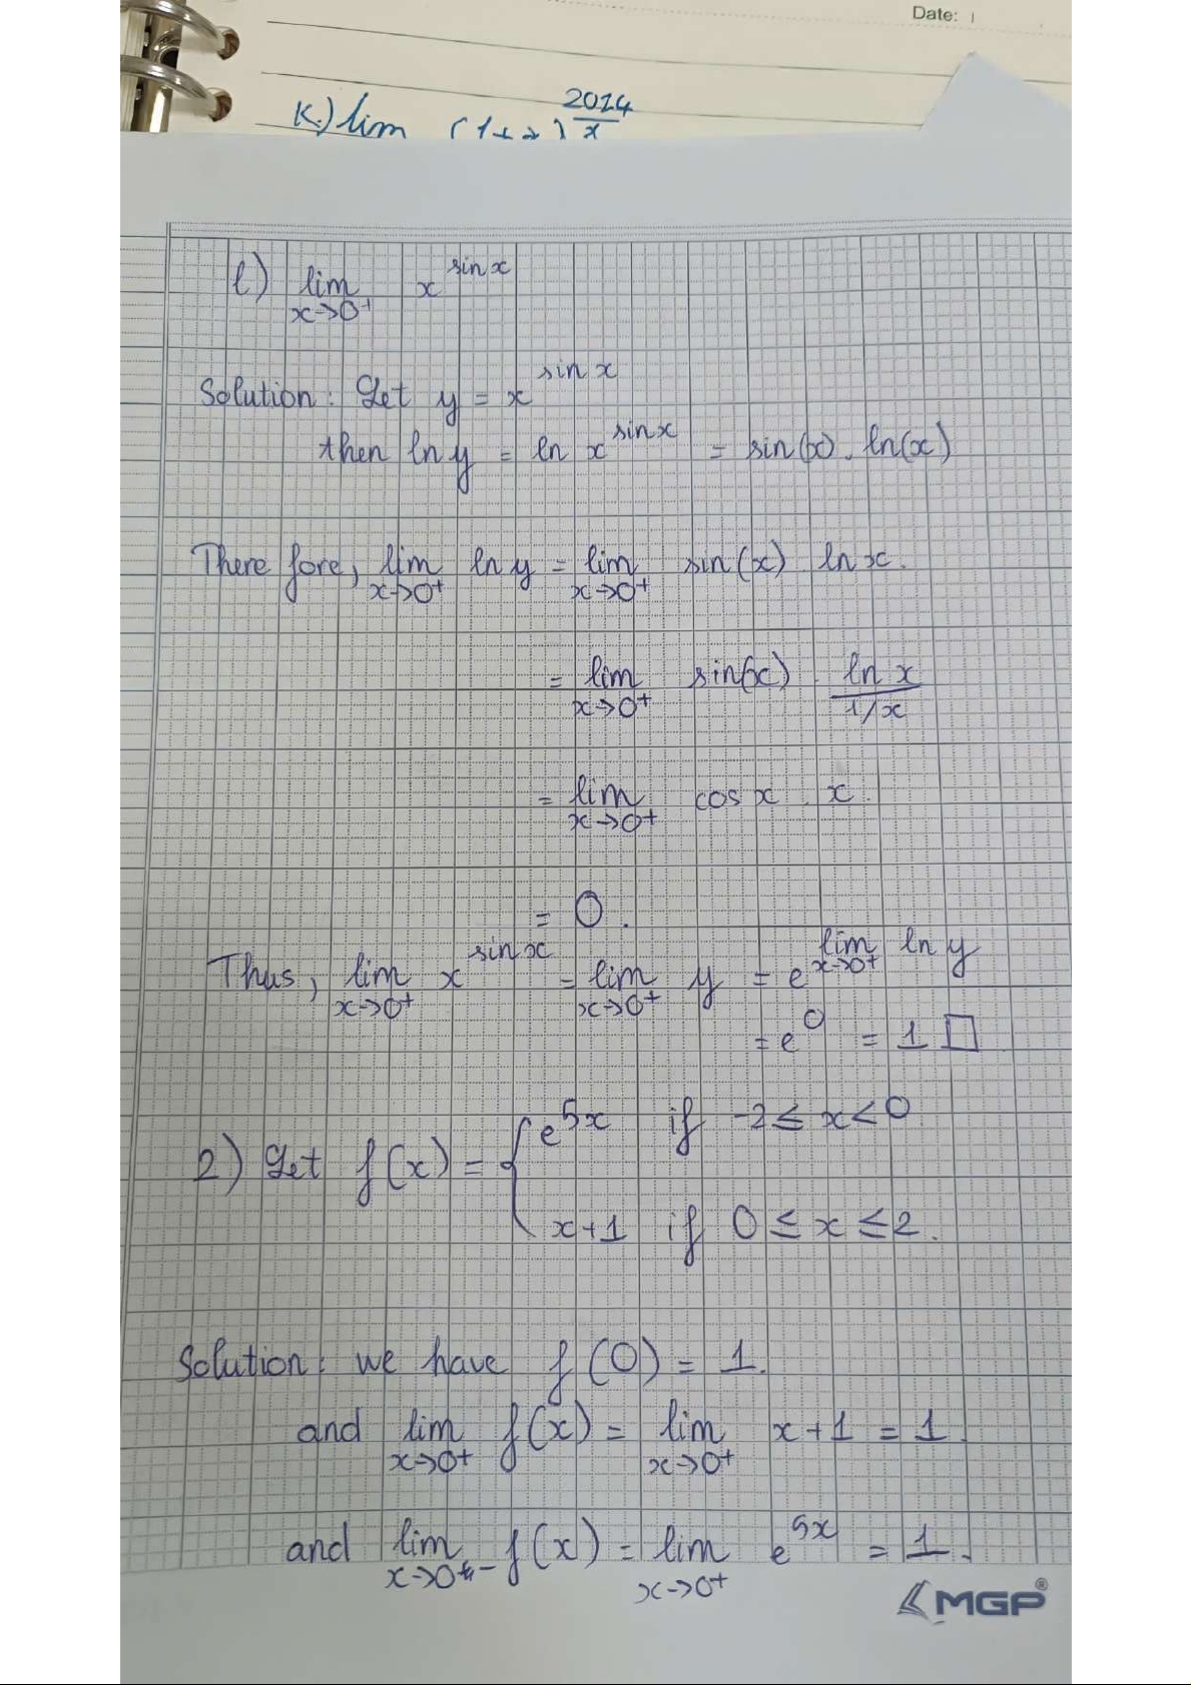 Date:
K.) lim (1+x)^(2014/x)
l) lim x→0+ x^(sin x)
Solution: Let y = x^(sin x)
then ln y = ln x^(sin x) = sin(x). ln(x)
There fore, lim x→0+ ln y = lim x→0+ sin(x) ln x.
= lim x→0+ sin(x) . ln x / (1/x)
= lim x→0+ cos x . x.
= 0.
Thus, lim x→0+ x^(sin x) = lim x→0+ y = e^(lim x→0+ ln y)
= e^0 = 1 □
2) Let f(x) = { e^(5x) if -2 ≤ x < 0.
x+1 if 0 ≤ x ≤ 2.
Solution: we have f(0) = 1.
and lim x→0+ f(x) = lim x→0+ x+1 = 1.
and lim x→0- f(x) = lim x→0+ e^(5x) = 1.
MGP®